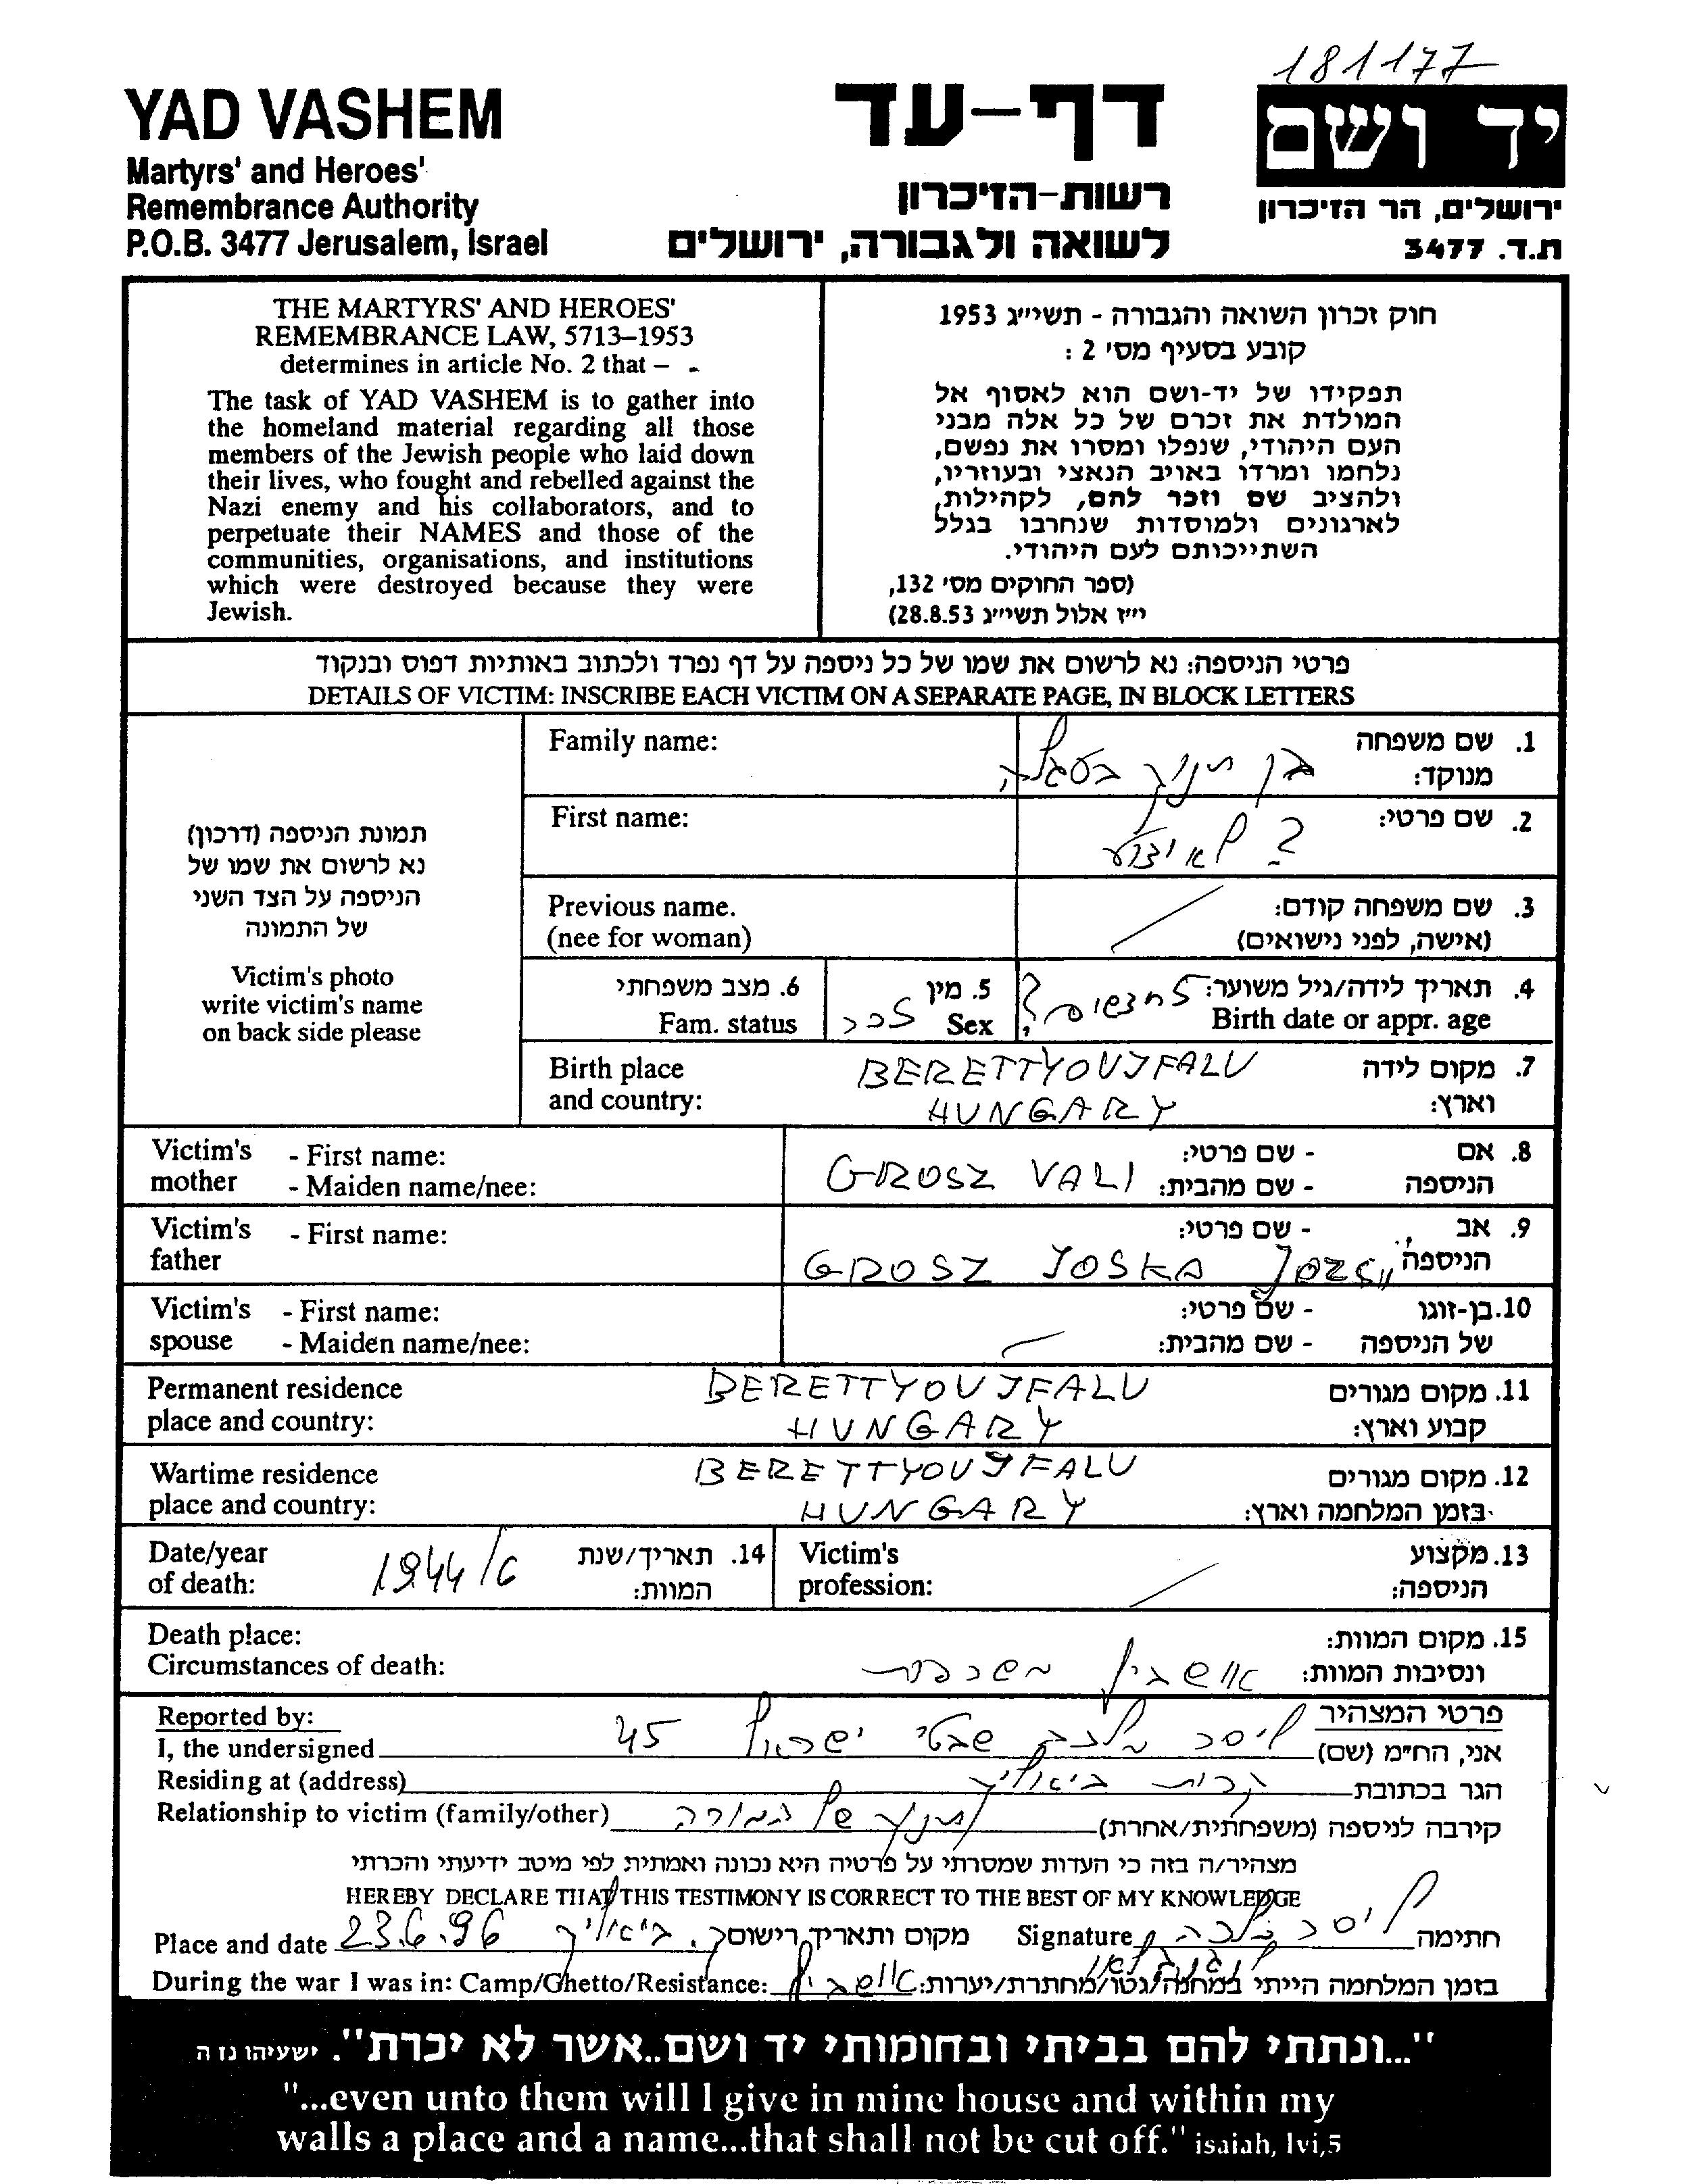 181177
YAD VASHEM
Martyrs' and Heroes'
Remembrance Authority
P.O.B. 3477 Jerusalem, Israel
דף-עד
רשות-הזיכרון
לשואה ולגבורה, ירושלים
יד ושם
ירושלים, הר הזיכרון
ת.ד. 3477
THE MARTYRS' AND HEROES'
REMEMBRANCE LAW, 5713–1953
determines in article No. 2 that –
The task of YAD VASHEM is to gather into
the homeland material regarding all those
members of the Jewish people who laid down
their lives, who fought and rebelled against the
Nazi enemy and his collaborators, and to
perpetuate their NAMES and those of the
communities, organisations, and institutions
which were destroyed because they were
Jewish.
חוק זכרון השואה והגבורה - תשי״ג 1953
קובע בסעיף מס' 2 :
תפקידו של יד-ושם הוא לאסוף אל
המולדת את זכרם של כל אלה מבני
העם היהודי, שנפלו ומסרו את נפשם,
נלחמו ומרדו באויב הנאצי ובעוזריו,
ולהציב שם וזכר להם, לקהילות,
לארגונים ולמוסדות שנחרבו בגלל
השתייכותם לעם היהודי.
(ספר החוקים מס' 132,
י״ז אלול תשי״ג 28.8.53)
פרטי הניספה: נא לרשום את שמו של כל ניספה על דף נפרד ולכתוב באותיות דפוס ובנקוד
DETAILS OF VICTIM: INSCRIBE EACH VICTIM ON A SEPARATE PAGE, IN BLOCK LETTERS
תמונת הניספה (דרכון)
נא לרשום את שמו של
הניספה על הצד השני
של התמונה
Victim's photo
write victim's name
on back side please
Family name: בן 1. שם משפחה
מנוקד:
First name: ? 2. שם פרטי:
Previous name. 3. שם משפחה קודם:
(nee for woman) (אישה, לפני נישואים)
6. מצב משפחתי 5. מין זכר 4. תאריך לידה/גיל משוער: 5 חדשים ?
Fam. status Sex Birth date or appr. age
Birth place BERETTYOUJFALU 7. מקום לידה
and country: HUNGARY וארץ:
Victim's - First name: - שם פרטי: 8. אם
mother - Maiden name/nee: GROSZ VALI - שם מהבית: הניספה
Victim's - First name: - שם פרטי: 9. אב
father GROSZ JOSKA הניספה
Victim's - First name: - שם פרטי: 10. בן-זוגו
spouse - Maiden name/nee: - שם מהבית: של הניספה
Permanent residence BERETTYOUJFALU 11. מקום מגורים
place and country: HUNGARY קבוע וארץ:
Wartime residence BERETTYOUJFALU 12. מקום מגורים
place and country: HUNGARY בזמן המלחמה וארץ:
Date/year 1944/6 14. תאריך/שנת Victim's 13. מקצוע
of death: המוות: profession: הניספה:
Death place: 15. מקום המוות:
Circumstances of death: אושביץ משרפות ונסיבות המוות:
Reported by: פרטי המצהיר
I, the undersigned ליסר מלכה שבטי ישראל 45 אני, הח״מ (שם)
Residing at (address) קרית ביאליק הגר בכתובת
Relationship to victim (family/other) קירבה לניספה (משפחתית/אחרת)
מצהיר/ה בזה כי העדות שמסרתי על פרטיה היא נכונה ואמתית לפי מיטב ידיעתי והכרתי
HEREBY DECLARE THAT THIS TESTIMONY IS CORRECT TO THE BEST OF MY KNOWLEDGE
Place and date 23.6.96 ק. ביאליק מקום ותאריך רישום Signature ליסר מלכה חתימה
During the war I was in: Camp/Ghetto/Resistance: אושביץ בזמן המלחמה הייתי במחנה/גטו/מחתרת/יערות:
"...ונתתי להם בביתי ובחומותי יד ושם..אשר לא יכרת". ישעיהו נז ה
"...even unto them will I give in mine house and within my
walls a place and a name...that shall not be cut off." isaiah, lvi,5